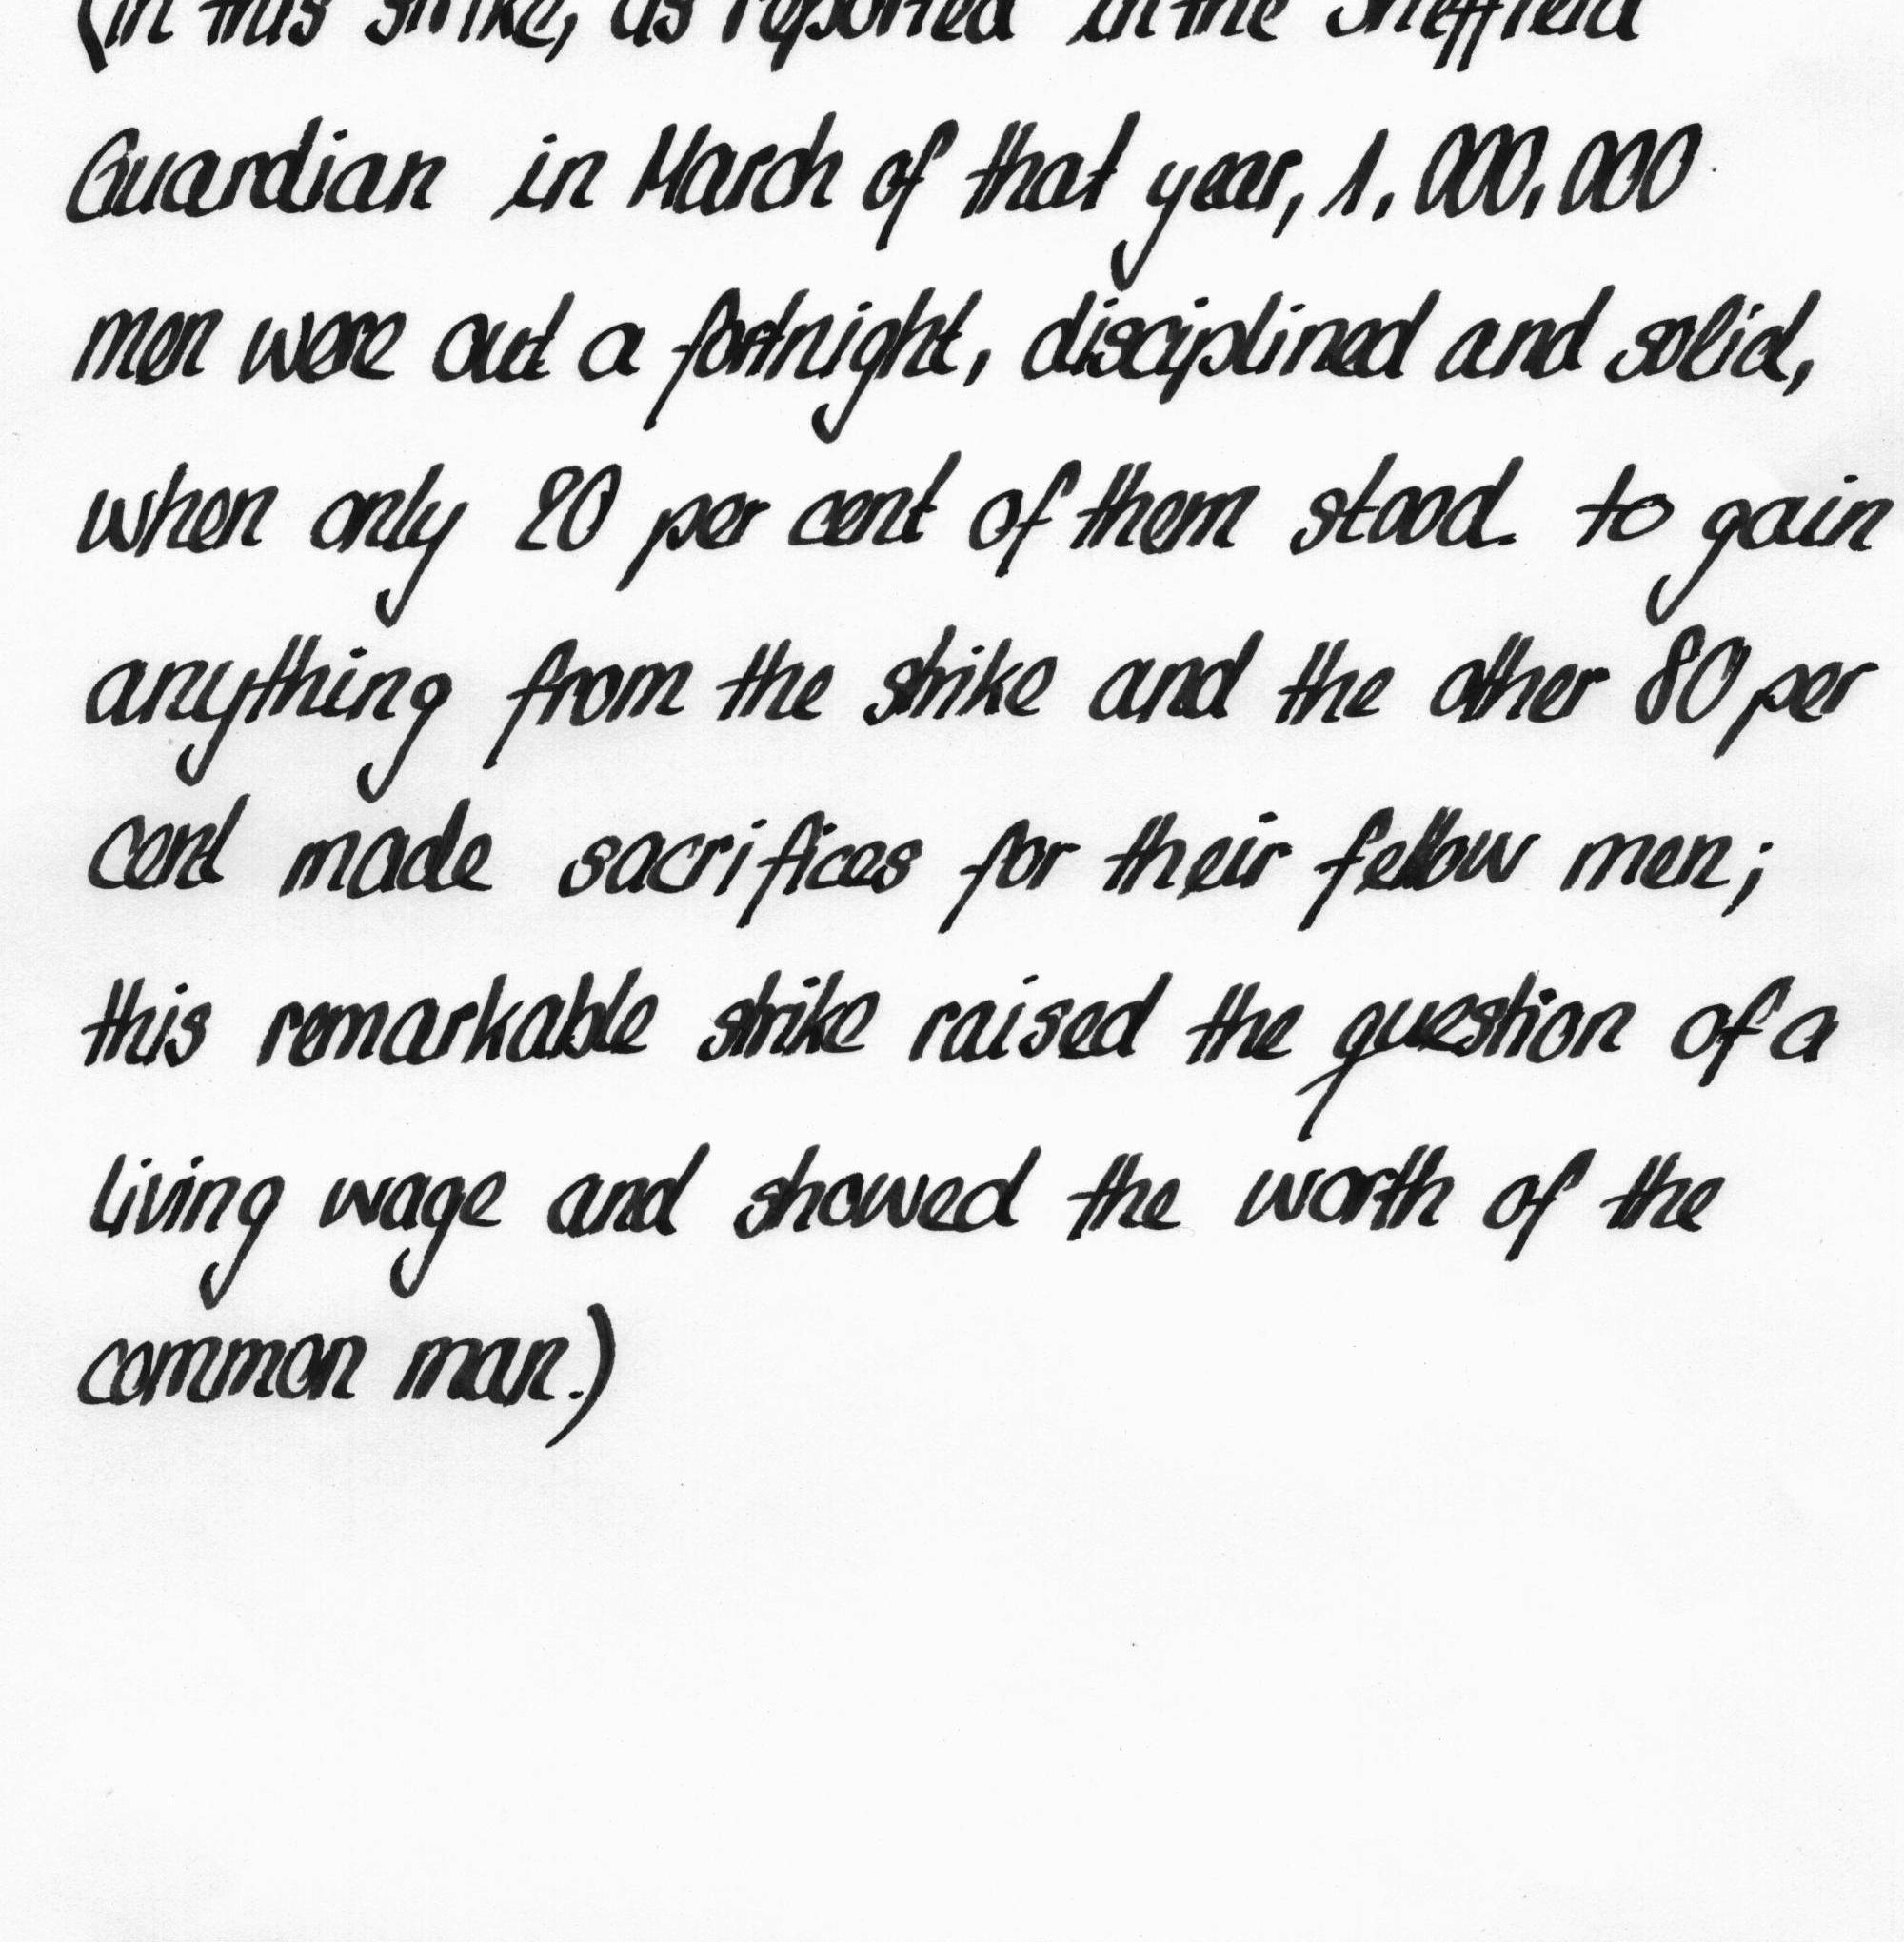 (in this strike, as reported in the Sheffield
Guardian in March of that year, 1,000,000
men were out a fortnight, disciplined and solid,
when only 20 per cent of them stood to gain
anything from the strike and the other 80 per
cent made sacrifices for their fellow men;
this remarkable strike raised the question of a
living wage and showed the worth of the
common man.)